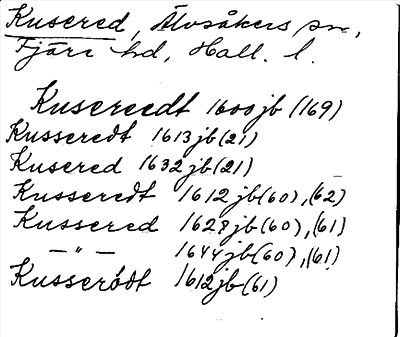 Kusered, Älvsåkers sn,
Fjäre hd, Hall. l.
Kusereedt 1600 jb (169)
Kusseredt 1613 jb (21)
Kusered 1632 jb (21)
Kusseredt 1612 jb (60), (62)
Kussered 1628 jb (60), (61)
— " — 1644 jb (60), (61)
Kusserödt 1612 jb (61)